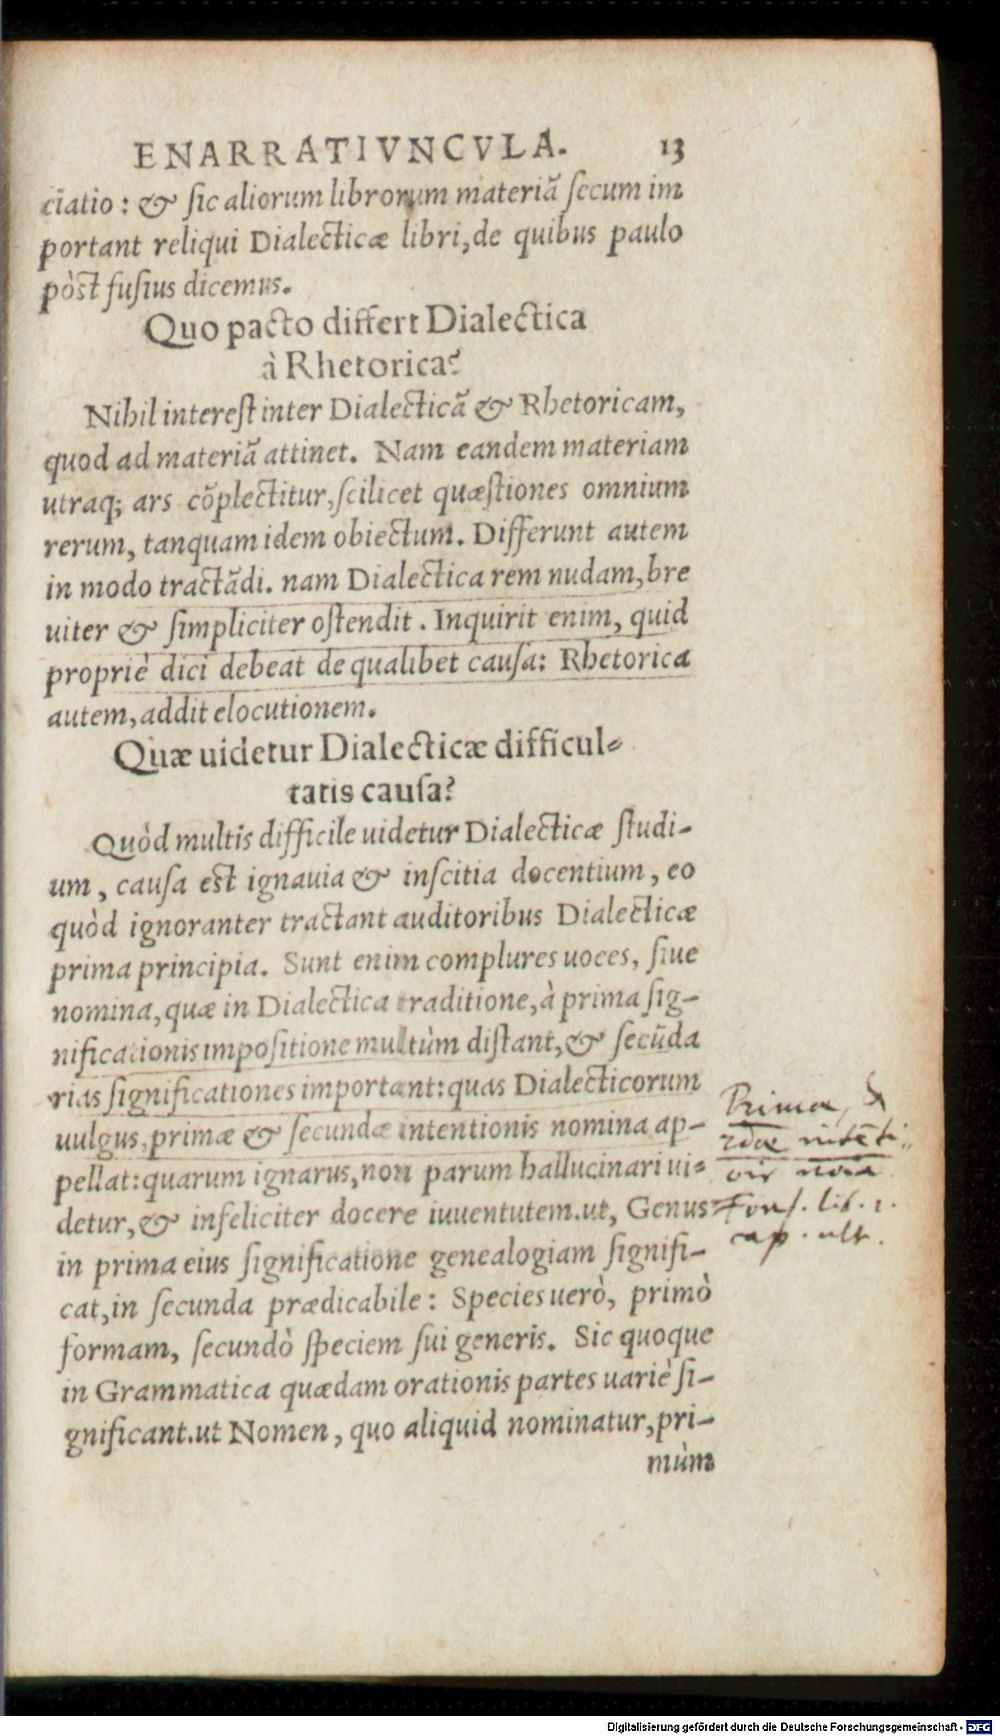 ENARRATIVNCVLA. 13
ciatio: & sic aliorum librorum materiã secum im
portant reliqui Dialecticæ libri, de quibus paulo
pòst fusius dicemus.
Quo pacto differt Dialectica
à Rhetorica?
Nihil interest inter Dialecticã & Rhetoricam,
quod ad materiã attinet. Nam eandem materiam
utraq; ars cõplectitur, scilicet quæstiones omnium
rerum, tanquam idem obiectum. Differunt autem
in modo tractãdi. nam Dialectica rem nudam, bre
uiter & simpliciter ostendit. Inquirit enim, quid
propriè dici debeat de qualibet causa: Rhetorica
autem, addit elocutionem.
Quæ uidetur Dialecticæ difficul-
tatis causa?
Quòd multis difficile uidetur Dialecticæ studi-
um, causa est ignauia & inscitia docentium, eo
quòd ignoranter tractant auditoribus Dialecticæ
prima principia. Sunt enim complures uoces, siue
nomina, quæ in Dialectica traditione, à prima sig-
nificationis impositione multùm distant, & secũda
rias significationes important: quas Dialecticorum
uulgus, primæ & secundæ intentionis nomina ap-
pellat: quarum ignarus, non parum hallucinari ui-
detur, & infeliciter docere iuuentutem. ut, Genus
in prima eius significatione genealogiam signifi-
cat, in secunda prædicabile: Species uerò, primò
formam, secundò speciem sui generis. Sic quoque
in Grammatica quædam orationis partes uariè si-
gnificant. ut Nomen, quo aliquid nominatur, pri-
mùm
Primæ, &
2dæ intẽti
oĩs noĩa
Fons. lib. 1.
cap. ult.
Digitalisierung gefördert durch die Deutsche Forschungsgemeinschaft - DFG